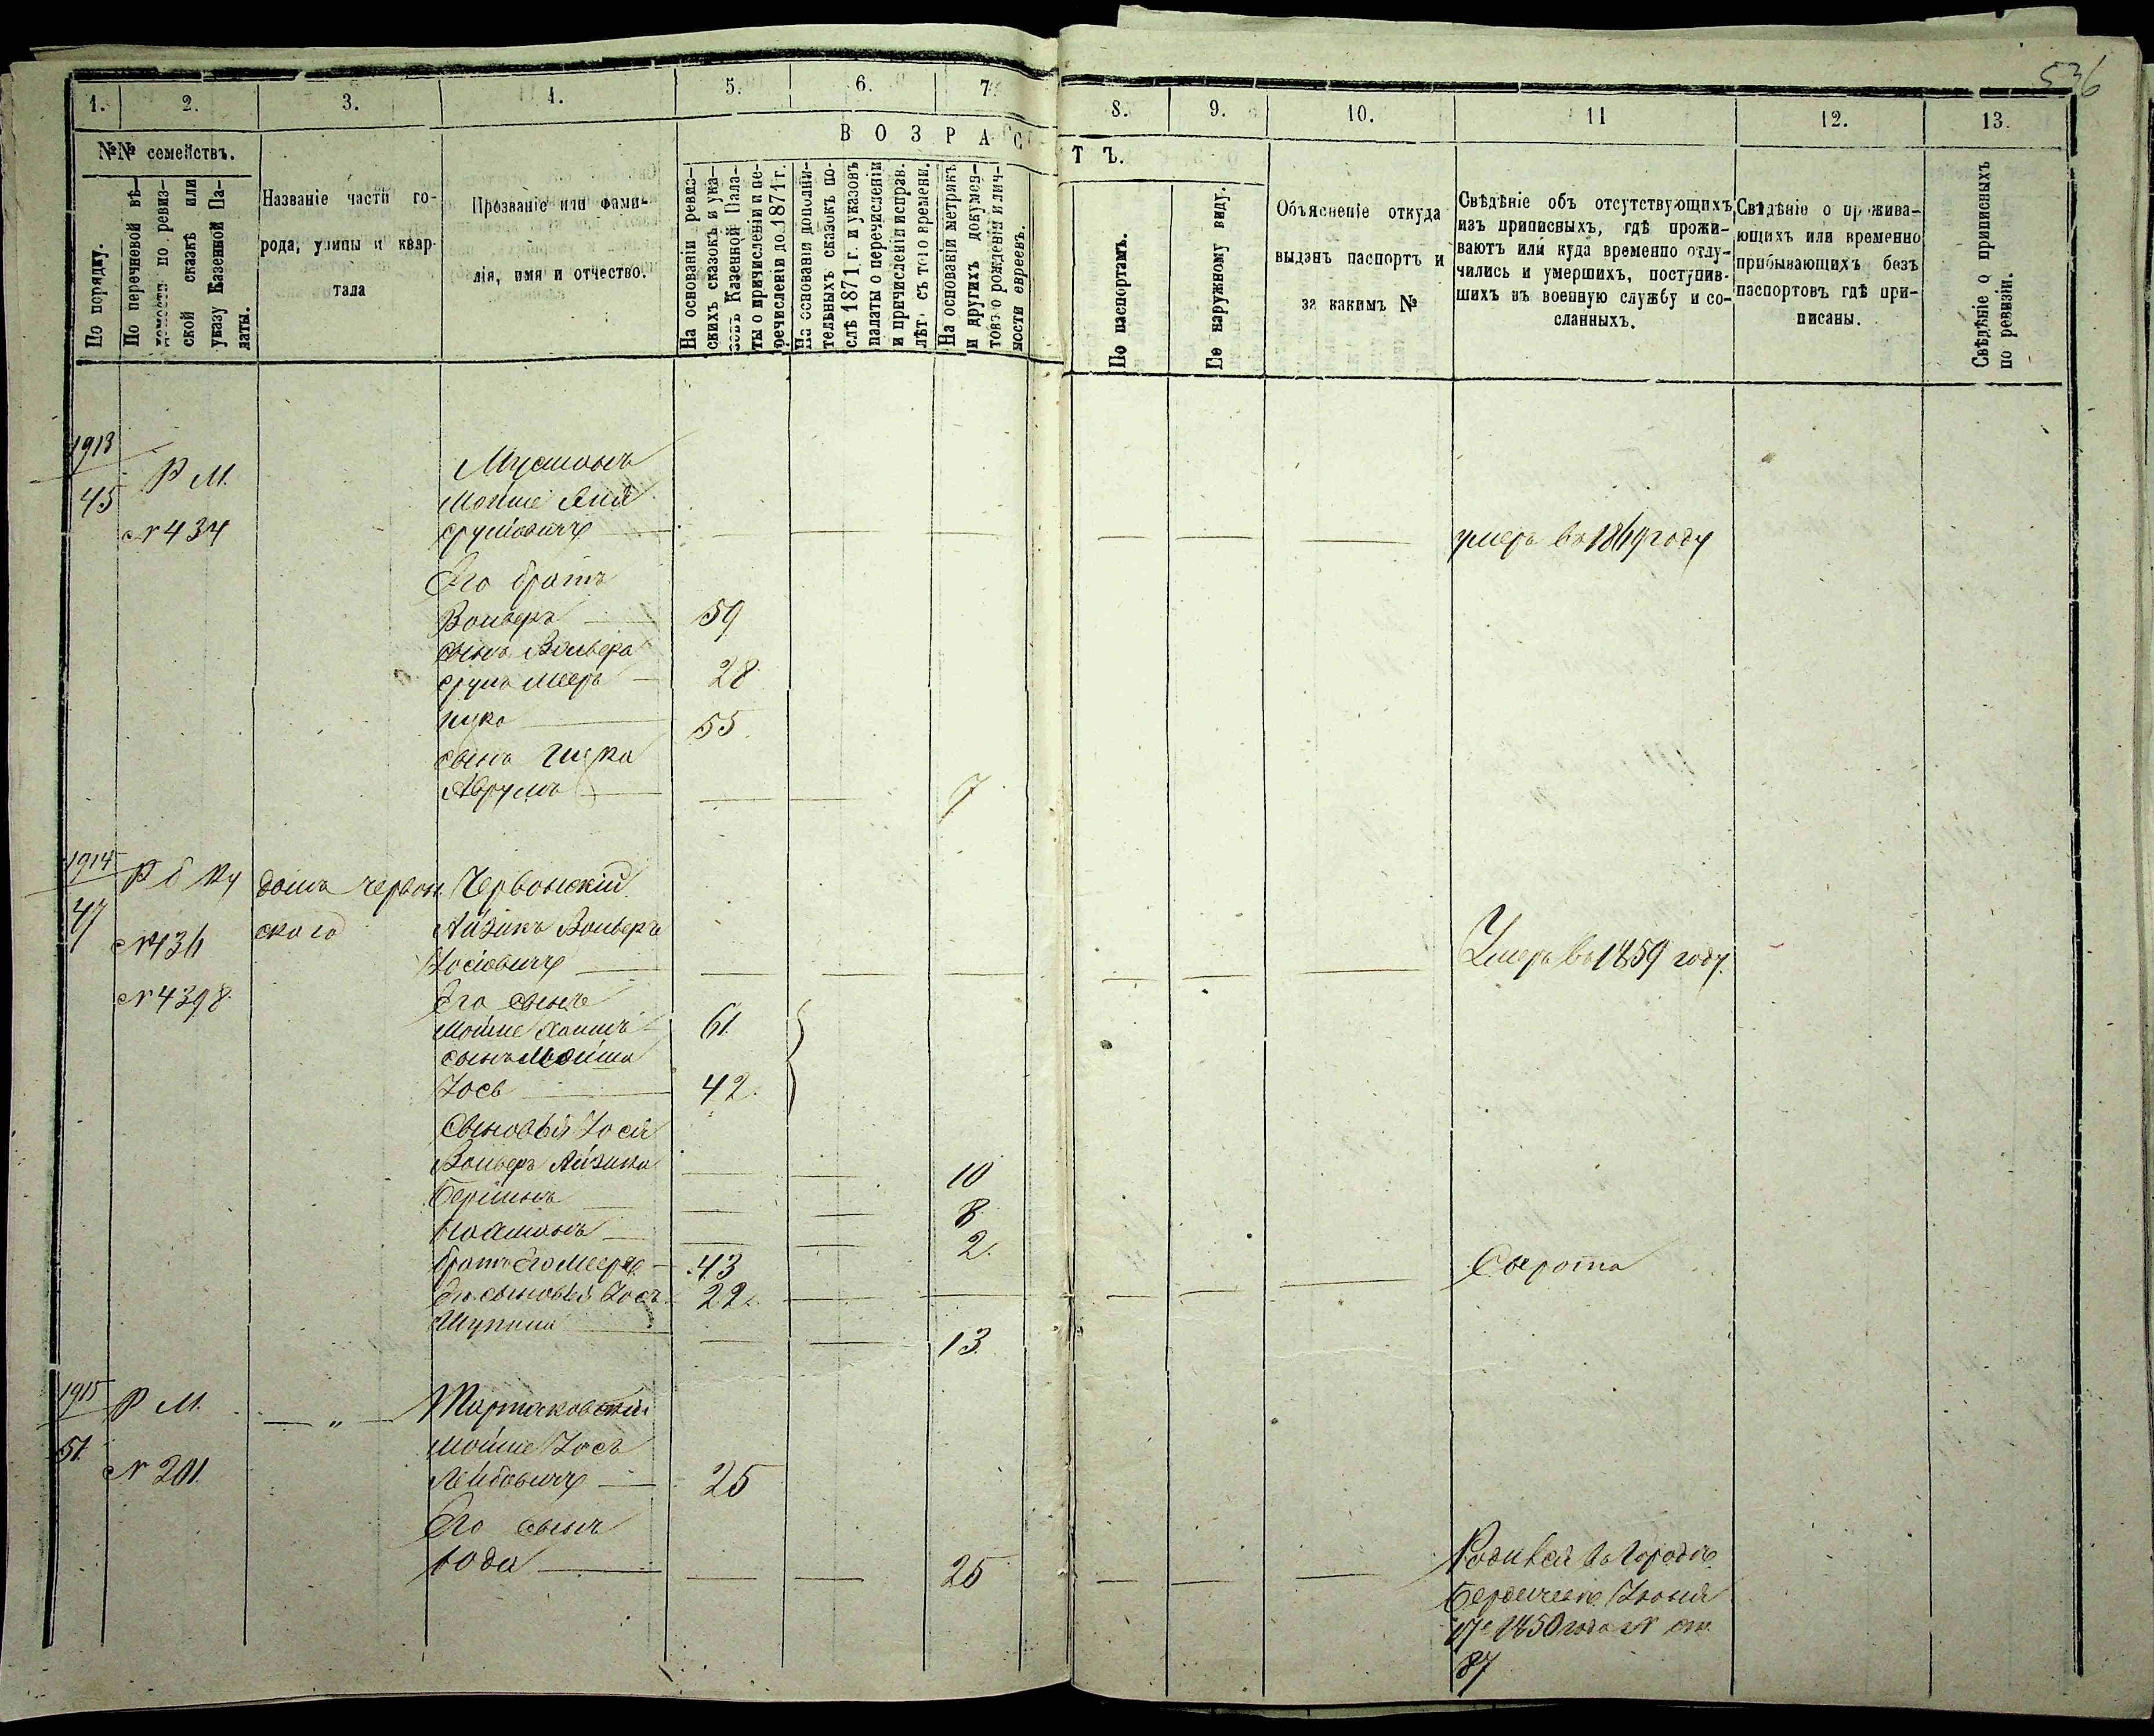 536
1. 2. 3. 4. 5. 6. 7. 8. 9. 10. 11 12. 13.
№№ семействъ.
По порядку.
По перечневой вѣ-
домости по ревиз-
ской сказкѣ или
указу Казенной Па-
латы.
Названіе части го-
рода, улицы и квар-
тала
Прозваніе или фами-
лія, имя и отчество.
ВОЗРАСТЪ.
На основаніи ревиз-
скихъ сказокъ и ука-
зовъ Казенной Пала-
ты о причисленіи и пе-
речисленіи до 1871 г.
На основаніи дополни-
тельныхъ сказокъ по-
слѣ 1871 г. и указовъ
палаты о перечисленіи
и причисленіи исправ.
лѣт. съ того времени.
На основаніи метрикъ
и другихъ докумен-
товъ о рожденіи и лич-
ности евреевъ.
По паспортамъ.
По наружному виду.
Объясненіе откуда
выданъ паспортъ и
за какимъ №
Свѣдѣніе объ отсутствующихъ
изъ приписныхъ, гдѣ прожи-
ваютъ или куда временно отлу-
чились и умершихъ, поступив-
шихъ въ военную службу и со-
сланныхъ.
Свѣдѣніе о прожива-
ющихъ или временно
прибывающихъ безъ
паспортовъ гдѣ при-
писаны.
Свѣдѣніе о приписныхъ
по ревизіи.
1913
45
Р М.
№ 434
Мойше
Срулiовичъ — умеръ въ 1869 году
Его братъ
Вольфъ — 59
сынъ Вольфа
Сруль Мееръ — 28
55
сынъ
Аврумъ — 7
1914
47
№ 436
№ 4398.
домъ Червон.
скаго
Червонскій
Айзикъ Вольфъ
Іосiовичъ — Умеръ въ 1859 году.
Его сынъ
Мойше Хаимъ 61.
сынъ Мойша
Іось — 42.
Сыновья Іося
Вольфъ Айзикъ — 10
8
2.
братъ его Мееръ — 43 Сирота
Его сыновья Іось 22.
13.
1915
51.
Р М.
№ 201.
— „ —
Мартаковскій
Мойше Іось
Лейбовичъ — 25
Его сынъ
Юда — 25
Родился въ Городѣ
Бердичевѣ Іюня
17е 1850 года № ст.
87